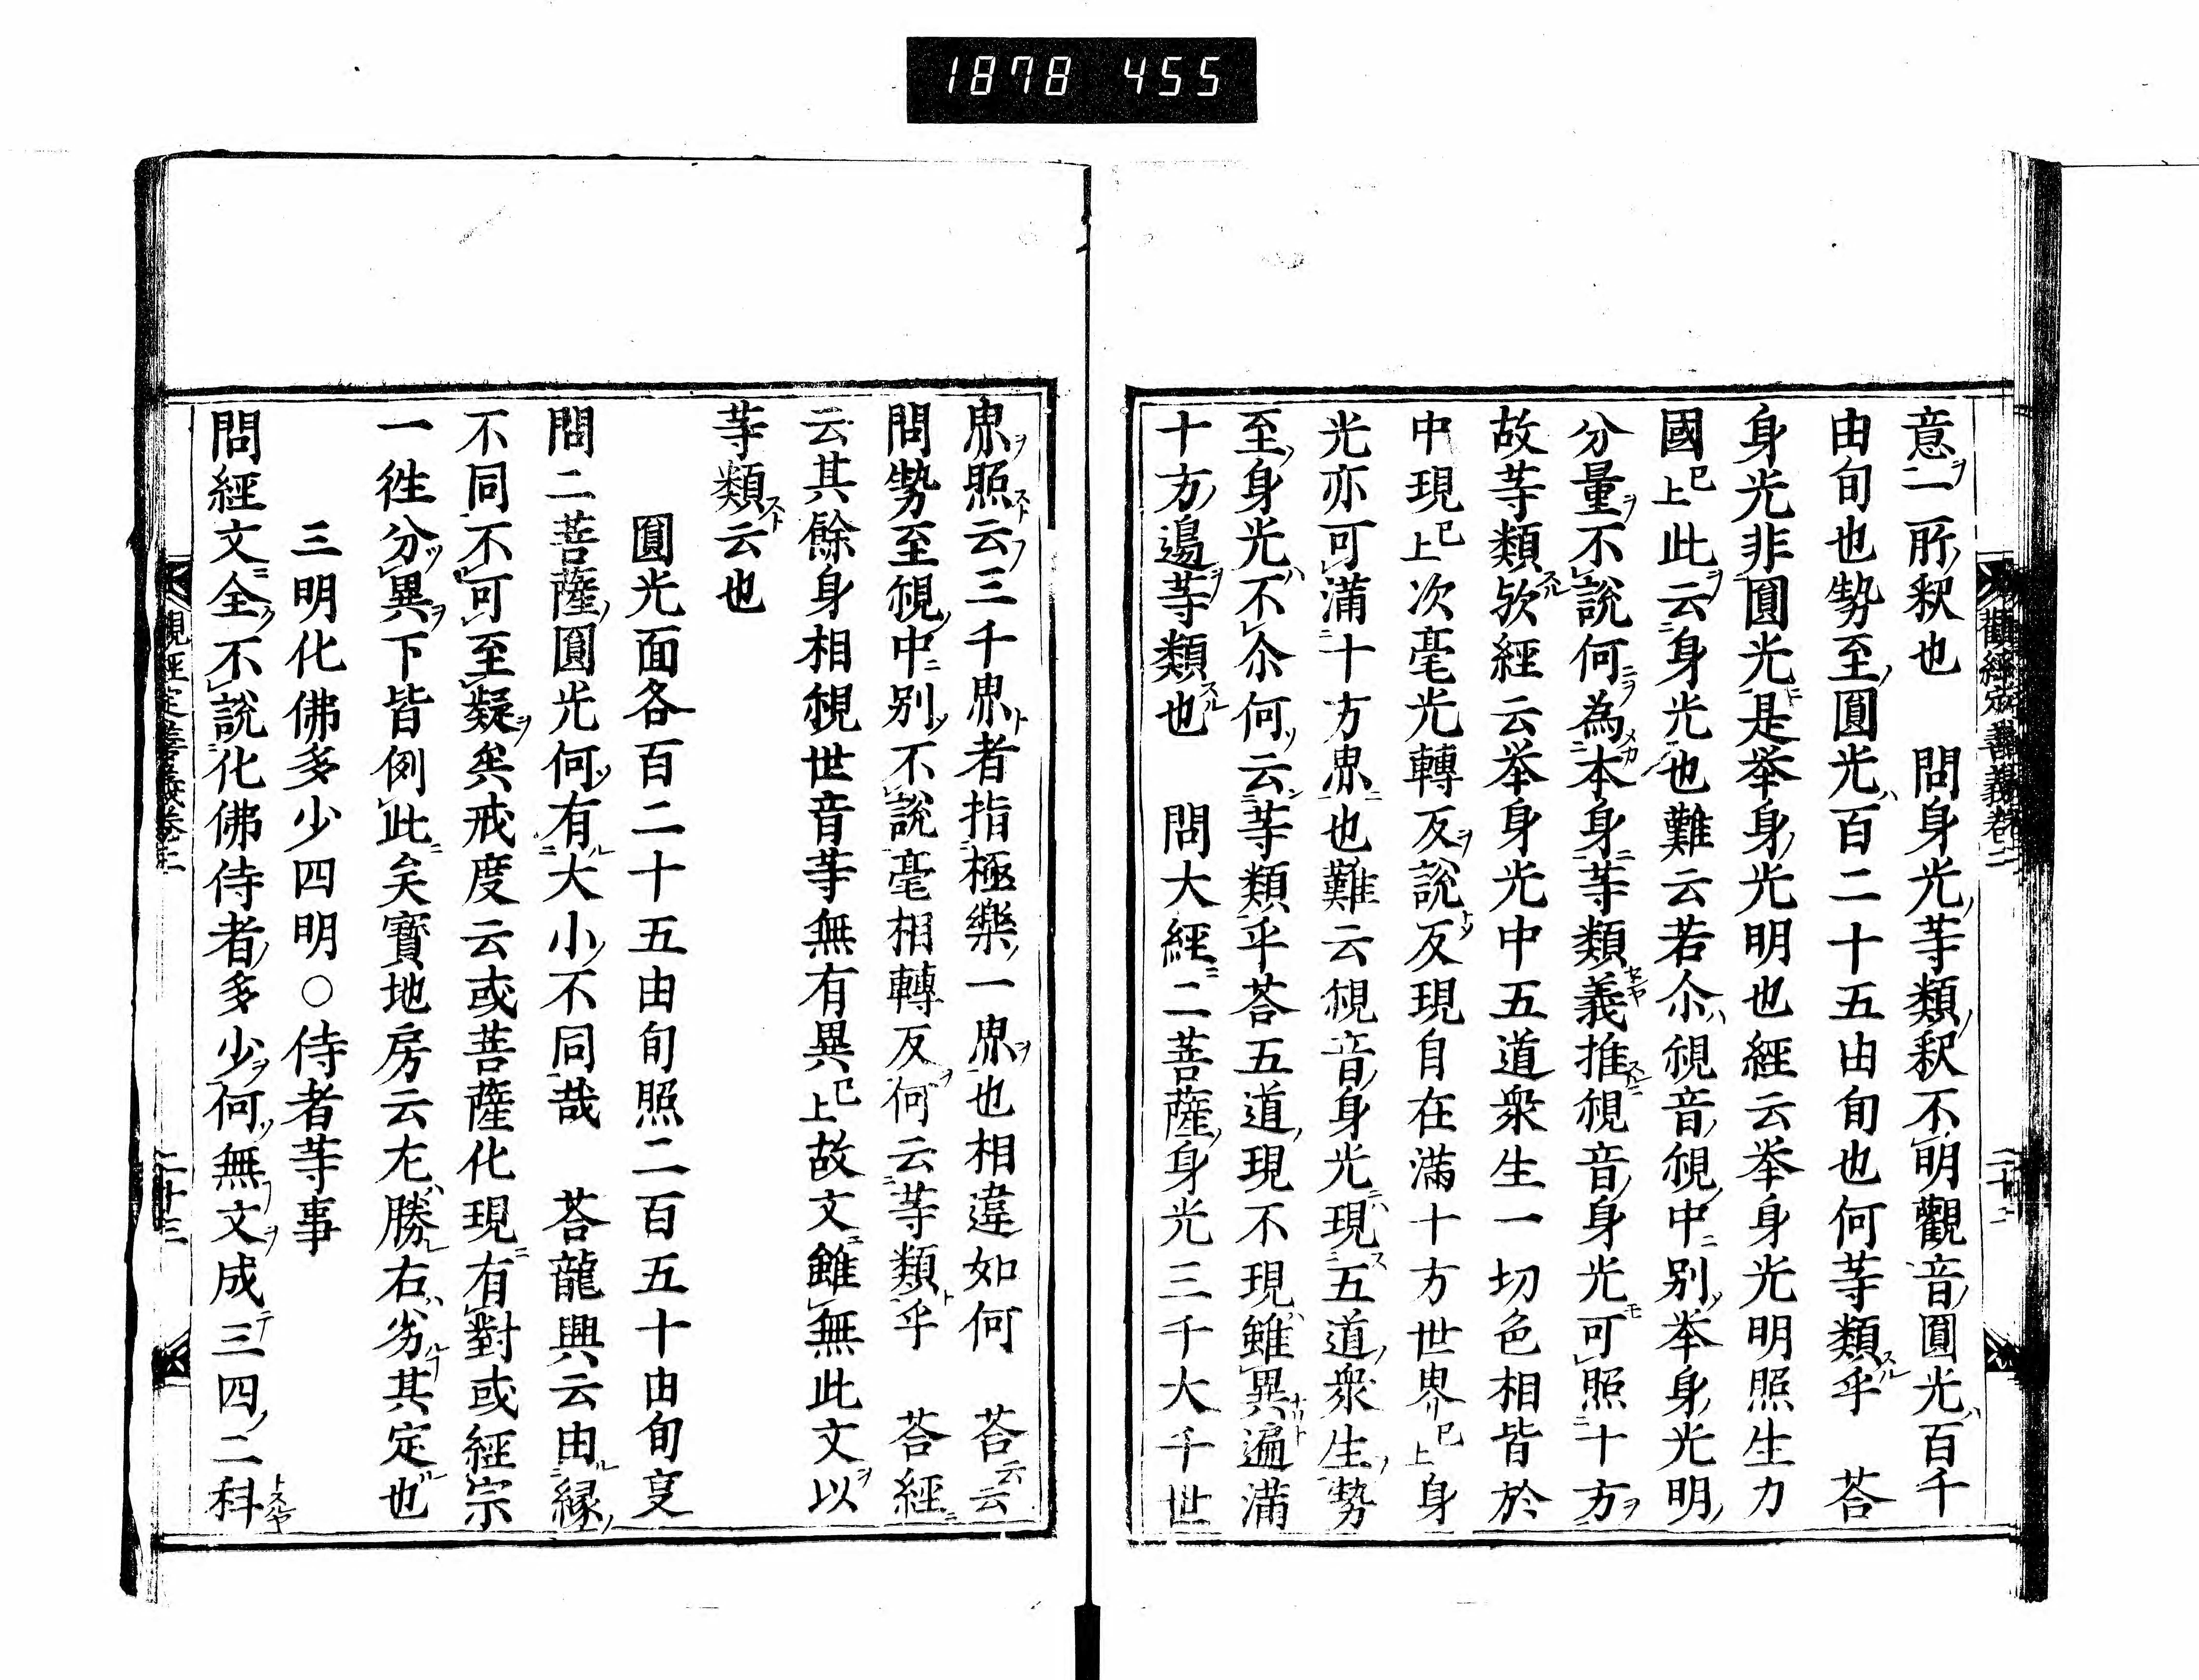 1878 455
觀經定善義卷二
二十二
意二所釈也　問身光等類釈不明觀音圓光百千
由旬也勢至圓光百二十五由旬也何等類乎　荅
身光非圓光是举身光明也經云举身光明照生力
國已上此云身光也難云若尒覌音覌中別举身光明
分量不說何為本身等類義推覌音身光可照十方
故等類欤經云举身光中五道衆生一切色相皆於
中現已上次毫光轉反說反現自在滿十方世界已上身
光亦可滿十方界也難云覌音身光現五道衆生勢
至身光不尒何云等類乎荅五道現不現雖異遍滿
十方邊等類也　問大經二菩薩身光三千大千世
界照云三千界者指極樂一界也相違如何　荅云云
問勢至覌中別不說毫相轉反何云等類乎　荅經
云其餘身相覌世音等無有異已上故文雖無此文以
等類云也
圓光面各百二十五由旬照二百五十由旬叓
問二菩薩圓光何有大小不同哉　荅龍興云由縁
不同不可至疑矣戒度云或菩薩化現有對或經宗
一徃分異下皆例此矣寳地房云左勝右劣其定也
三明化佛多少四明〇侍者等事
問經文全不說化佛侍者多少何無文成三四二科
觀經定善義卷二
二十三